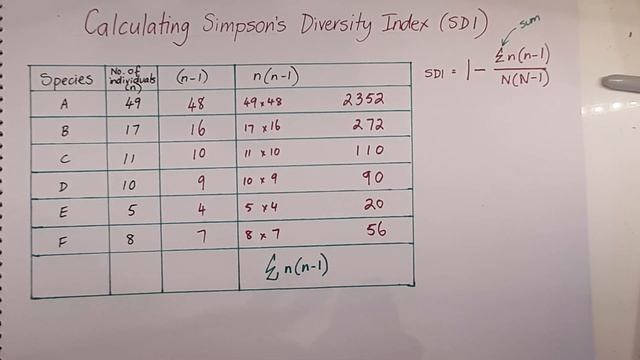 Calculating Simpson's Diversity Index (SDI)
sum
SDI = 1 - Σn(n-1)
N(N-1)
Species No. of individuals (n) (n-1) n(n-1)
A 49 48 49 × 48 2352
B 17 16 17 × 16 272
C 11 10 11 × 10 110
D 10 9 10 × 9 90
E 5 4 5 × 4 20
F 8 7 8 × 7 56
Σ n(n-1)